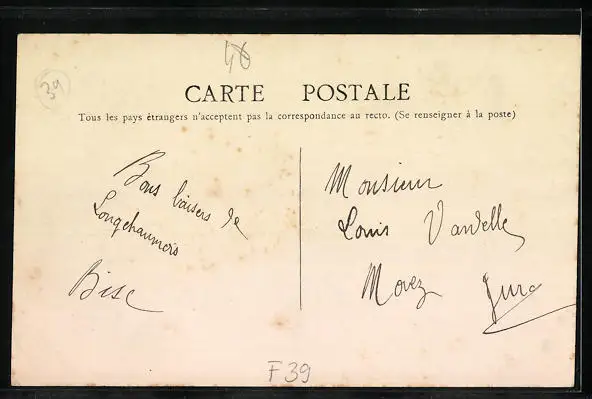 46
39
CARTE POSTALE
Tous les pays étrangers n'acceptent pas la correspondance au recto. (Se renseigner à la poste)
Bons baisers de
Longchaumois
Bise
Monsieur
Louis Vandelle
Morez Jura
F39